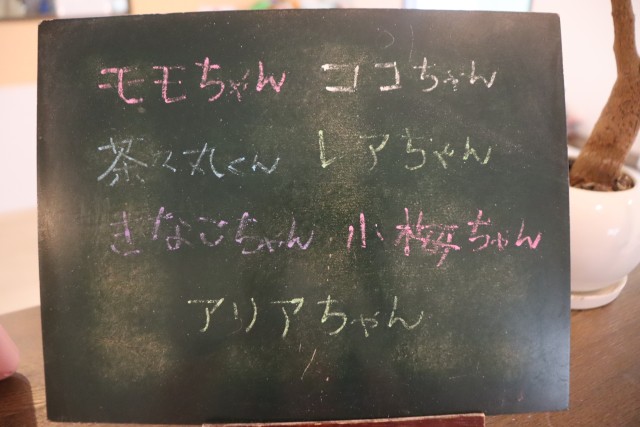 モモちゃん ココちゃん
茶々丸くん レアちゃん
きなこちゃん 小梅ちゃん
アリアちゃん